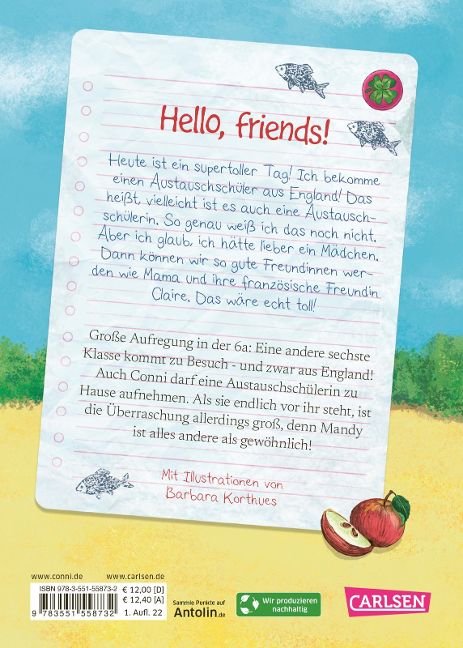 Hello, friends!
Heute ist ein supertoller Tag! Ich bekomme
einen Austauschschüler aus England! Das
heißt, vielleicht ist es auch eine Austausch-
schülerin. So genau weiß ich das noch nicht.
Aber ich glaub, ich hätte lieber ein Mädchen.
Dann können wir so gute Freundinnen wer-
den wie Mama und ihre französische Freundin
Claire. Das wäre echt toll!
Große Aufregung in der 6a: Eine andere sechste
Klasse kommt zu Besuch - und zwar aus England!
Auch Conni darf eine Austauschschülerin zu
Hause aufnehmen. Als sie endlich vor ihr steht, ist
die Überraschung allerdings groß, denn Mandy
ist alles andere als gewöhnlich!
Mit Illustrationen von
Barbara Korthues
www.conni.de www.carlsen.de
ISBN 978-3-551-55873-2
€ 12,00 [D]
€ 12,40 [A]
9 783551 558732
1. Aufl. 22
Sammle Punkte auf
Antolin.de
Wir produzieren
nachhaltig
CARLSEN